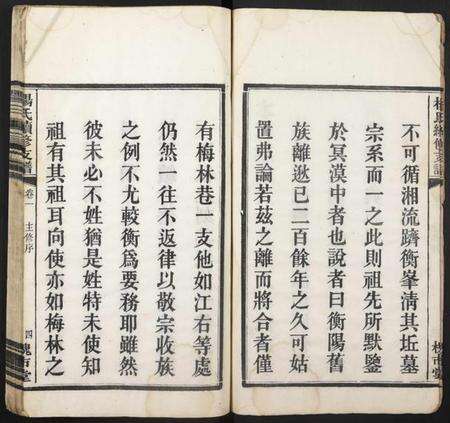 不可循湘流躋衡峯清其坵墓
宗系而一之此則祖先所默鑒
於冥漠中者也說者曰衡陽舊
族離逖已二百餘年之久可姑
置弗論若茲之離而將合者僅
有梅林巷一支他如江右等處
仍然一往不返律以敬宗收族
之例不尤較衡爲要務耶雖然
彼未必不姓猶是姓特未使知
祖有其祖耳向使亦如梅林之
楊氏續修支譜
卷一
主修序
四